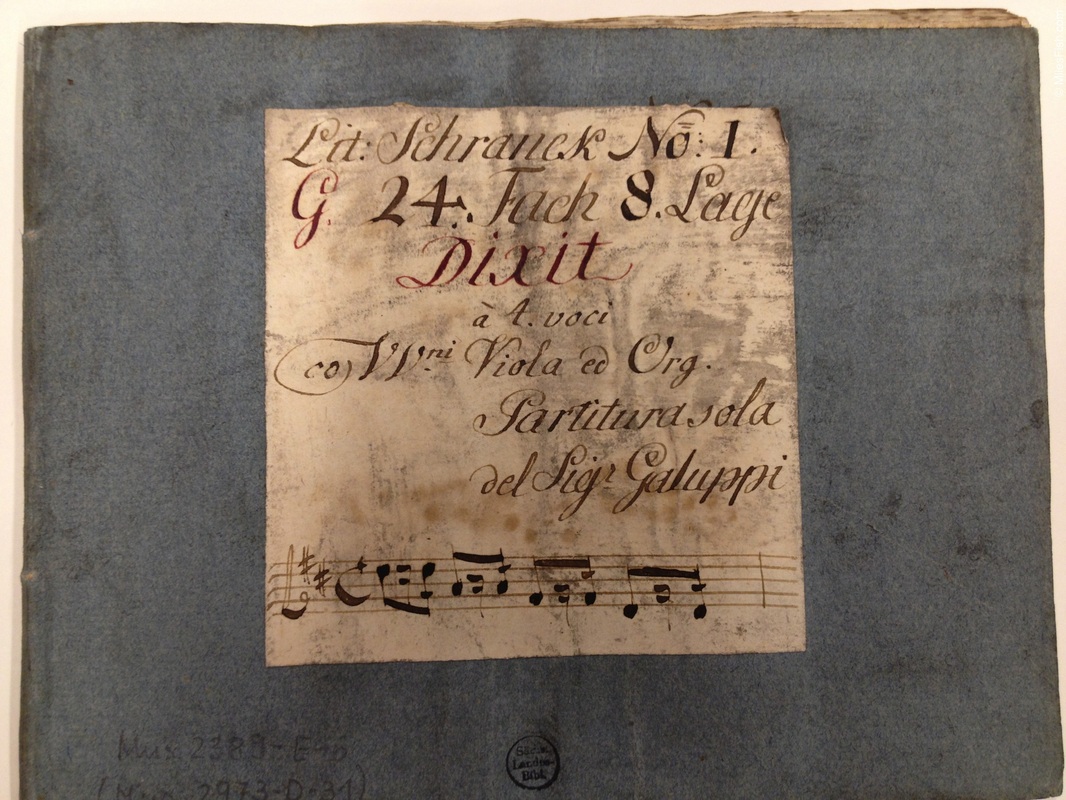 Lit: Schranck No: I.
G. 24. Fach 8. Lage
Dixit
à 4. voci
co VVni Viola ed Org.
Partitura sola
del Sigr Galuppi
Mus. 2389-E-
Sächs.
Landes-
Bibl.
(Mus. 2973-D-31)